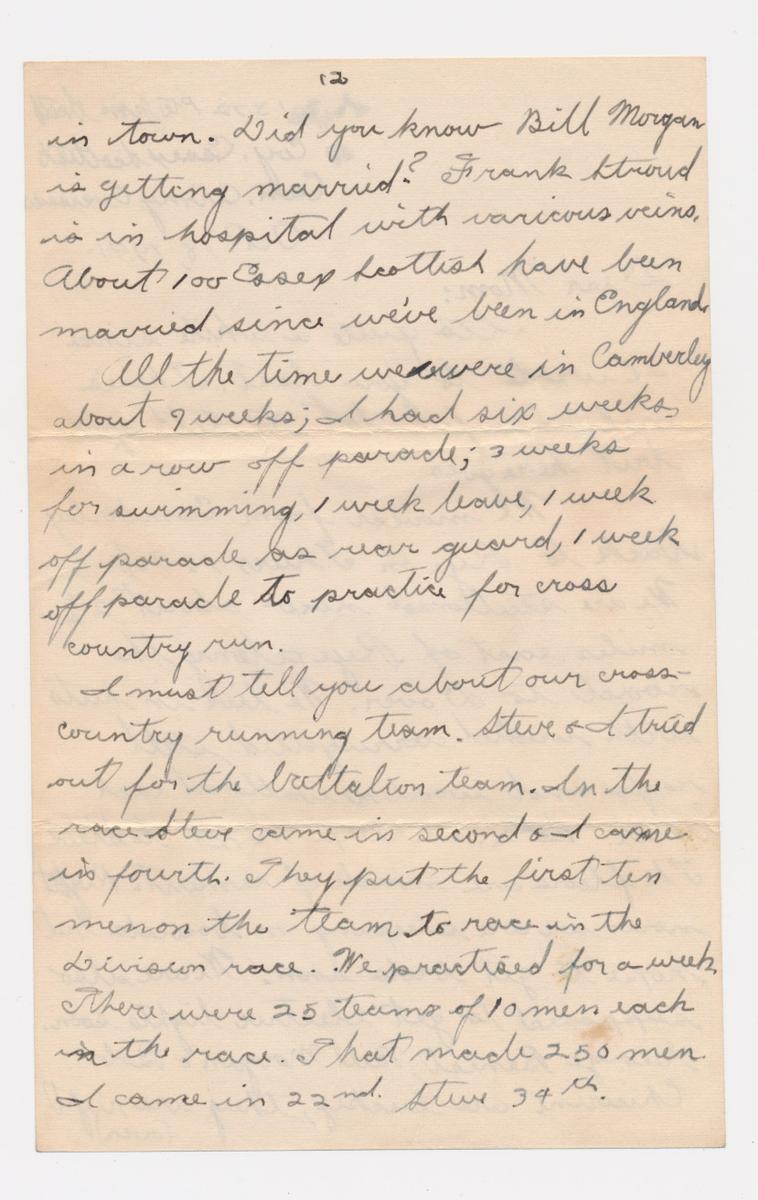 12
in town. Did you know Bill Morgan
is getting married? Frank Stroud
is in hospital with varicous veins.
About 100 Essex Scottish have been
married since we've been in England.
All the time we were in Camberley
about 9 weeks; I had six weeks,
in a row off parade; 3 weeks
for swimming, 1 week leave, 1 week
off parade as rear guard, 1 week
off parade to practice for cross
country run.
I must tell you about our cross-
country running team. Steve & I tried
out for the battalion team. In the
race Steve came in second & I came
in fourth. They put the first ten
men on the team to race in the
Division race. We practised for a week.
There were 25 teams of 10 men each
in the race. That made 250 men.
I came in 22nd. Steve 34th.